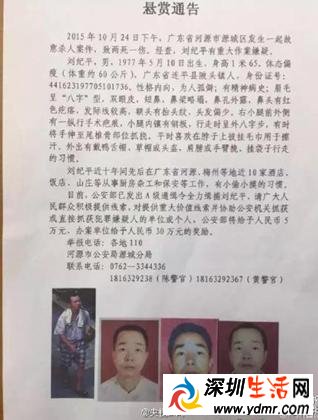 悬赏通告
2015年10月24日下午，广东省河源市源城区发生一起故
意杀人案件，致两死一伤。经查，刘纪平有重大作案嫌疑。
刘纪平，男，1977年5月10日出生，身高1米65，体态偏
瘦（体重约60公斤），广东省连平县陂头镇人，身份证号：
441623197705101736，性格内向，为人孤僻；有精神病史；眉毛
呈“八字”型，双眼皮，短鼻，鼻梁略塌，鼻孔外露，鼻头有红
色疤痕，发际线较高，额头有抬头纹，扶头发少。右小腿前外侧
有一纵行手术疤痕，小腿内镶有钢板，行走时呈外八字步，有时
将手伸至尾椎骨部位抓挠。平时喜欢在脖子上披挂毛巾用于擦
汗，外出有戴鸭舌帽、草帽或头盔，肩膀或手臂挽、挂袋子行走
的习惯。
刘纪平近十年间先后在广东省河源、梅州等地近10家酒店、
饭店、山庄等从事厨房杂工和保安等工作，有小偷小摸的习惯。
目前，公安部已发出A级通缉令全力缉捕刘纪平，请广大人
民群众积极提供线索，对提供重大价值线索并协助公安机关抓获
或直接抓获犯罪嫌疑人的单位或个人，公安部将给予人民币5
万元、办案单位给予人民币30万元的奖励。
举报电话：各地110
河源市公安局源城分局
联系电话：0762—3344336
18163292238（陈警官） 18163292367（黄警官）
@央视新闻
深圳生活网
www.ydmr.com